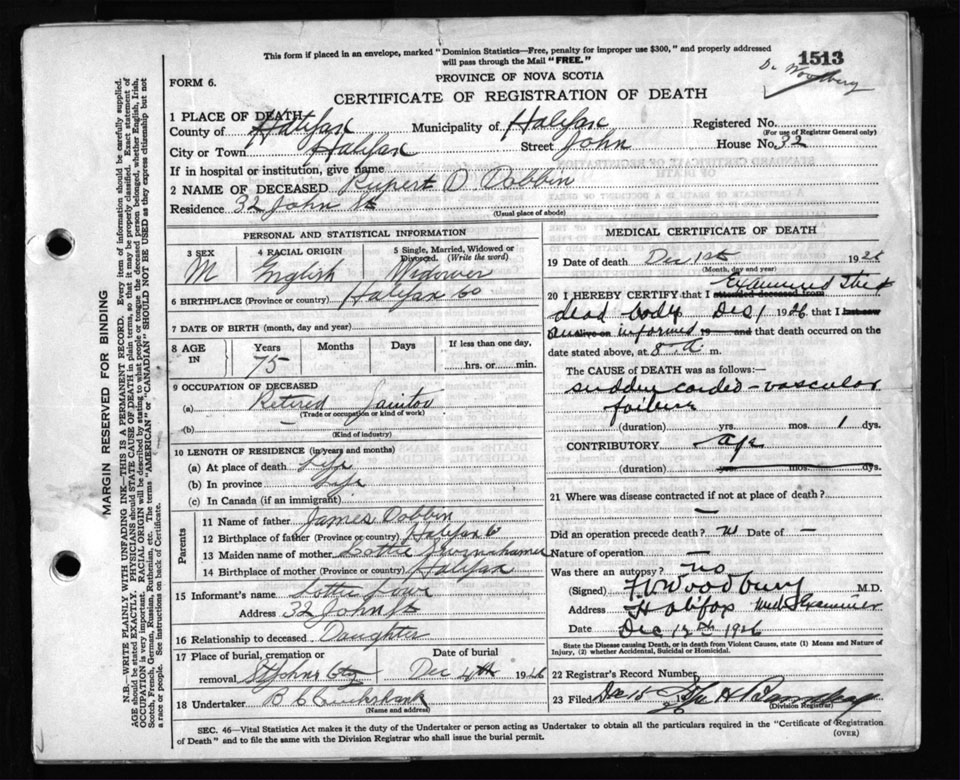 This form if placed in an envelope, marked "Dominion Statistics—Free, penalty for improper use $300," and properly addressed
will pass through the Mail "FREE."
1513
Dr Woodbury
FORM 6.
PROVINCE OF NOVA SCOTIA
CERTIFICATE OF REGISTRATION OF DEATH
1 PLACE OF DEATH
County of Halifax Municipality of Halifax Registered No.
(For use of Registrar General only)
City or Town Halifax Street John House No. 32
If in hospital or institution, give name
2 NAME OF DECEASED Rupert D Dobbin
Residence 32 John St
(Usual place of abode)
PERSONAL AND STATISTICAL INFORMATION
3 SEX 4 RACIAL ORIGIN 5 Single, Married, Widowed or Divorced. (Write the word)
M English Widower
6 BIRTHPLACE (Province or country) Halifax Co
7 DATE OF BIRTH (month, day and year)
8 AGE IN Years Months Days If less than one day,
75 hrs. or min.
9 OCCUPATION OF DECEASED
(a) Retired Janitor
(Trade or occupation or kind of work)
(b)
(Kind of industry)
10 LENGTH OF RESIDENCE (in years and months)
(a) At place of death Life
(b) In province Life
(c) In Canada (if an immigrant)
Parents
11 Name of father James Dobbin
12 Birthplace of father (Province or country) Halifax Co
13 Maiden name of mother Lottie
14 Birthplace of mother (Province or country) Halifax
15 Informant's name Lottie
Address 32 John St
16 Relationship to deceased Daughter
17 Place of burial, cremation or removal Date of burial
St Johns Cty Dec 4th 1926
18 Undertaker B C Cruikshank
(Name and address)
MEDICAL CERTIFICATE OF DEATH
19 Date of death Dec 1st 1926
(Month, day and year)
Examined the
20 I HEREBY CERTIFY that I attended deceased from
dead body Dec 1 1926 that I last saw
alive on informed 19 and that death occurred on the
date stated above, at 8 a. m.
The CAUSE of DEATH was as follows:—
sudden cardio-vascular
failure
(duration) yrs. mos. 1 dys.
CONTRIBUTORY age
(duration) yrs. mos. dys.
21 Where was disease contracted if not at place of death?
—
Did an operation precede death? no Date of —
Nature of operation —
Was there an autopsy? no
(Signed) F V Woodbury M.D.
Address Halifax Med Examiner
Date Dec 12th 1926
State the Disease causing Death, or in Death from Violent Causes, state (1) Means and Nature of
Injury, (2) whether Accidental, Suicidal or Homicidal.
22 Registrar's Record Number
23 Filed Dec 15
(Division Registrar)
SEC. 46—Vital Statistics Act makes it the duty of the Undertaker or person acting as Undertaker to obtain all the particulars required in the "Certificate of Registration
of Death" and to file the same with the Division Registrar who shall issue the burial permit.
(OVER)
MARGIN RESERVED FOR BINDING
N.B.—WRITE PLAINLY WITH UNFADING INK—THIS IS A PERMANENT RECORD. Every item of information should be carefully supplied.
AGE should be stated EXACTLY. PHYSICIANS should STATE CAUSE OF DEATH in plain terms, so that it may be properly classified. Exact statement of
OCCUPATION is very important. RACIAL ORIGIN will be described by stating to what people or tongue the deceased person belonged, whether English, Irish,
Scotch, French, German, Russian, Ruthenian, etc. The terms "AMERICAN" or "CANADIAN" SHOULD NOT BE USED as they express citizenship but not
a race or people. See instructions on back of Certificate.